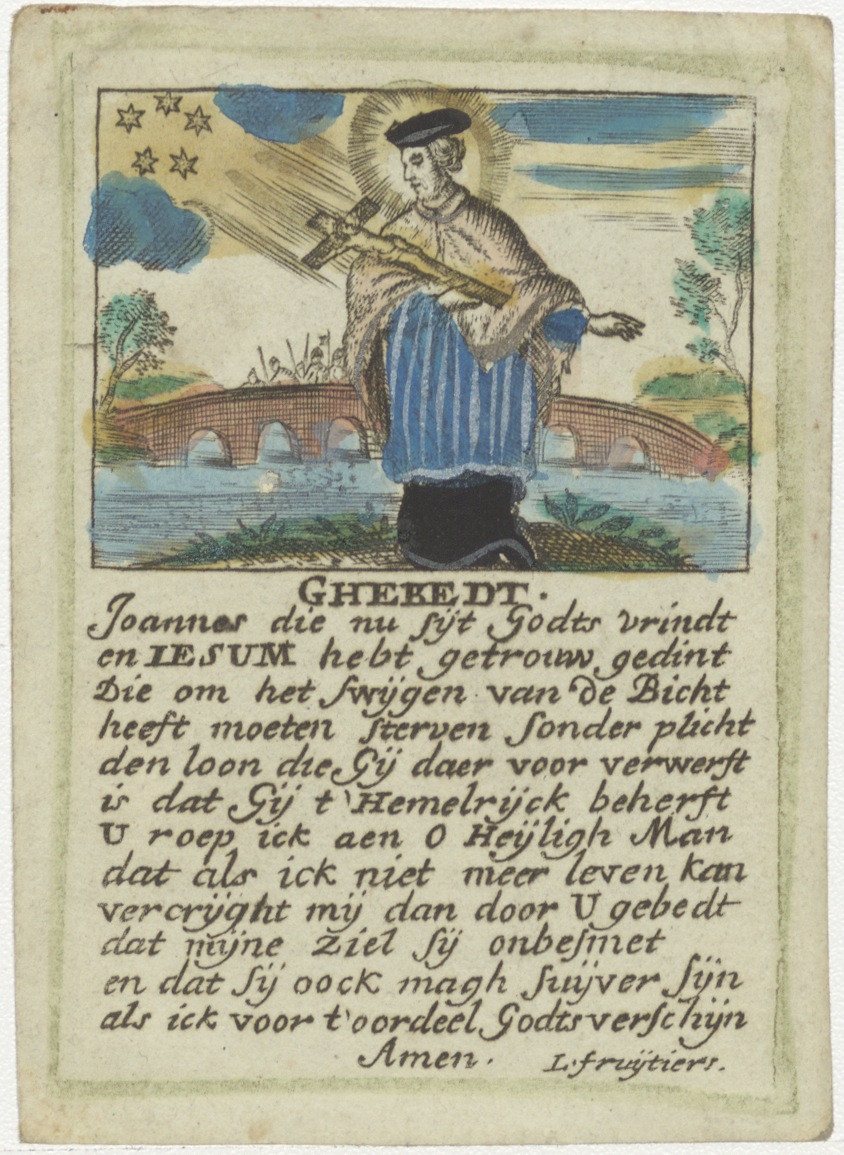 GHEBEDT.
Joannes die nu sijt Godts vrindt
en IESUM hebt getrouw gedint
Die om het swijgen van de Bicht
heeft moeten sterven sonder plicht
den loon die Gij daer voor verwerft
is dat Gij t'Hemelrijck beherft
U roep ick aen O Heijligh Man
dat als ick niet meer leven kan
vercrijght mij dan door U gebedt
dat mijne Ziel sij onbesmet
en dat sij oock magh suijver sijn
als ick voor t'oordeel Godts verschijn
Amen.
L. fruijtiers.